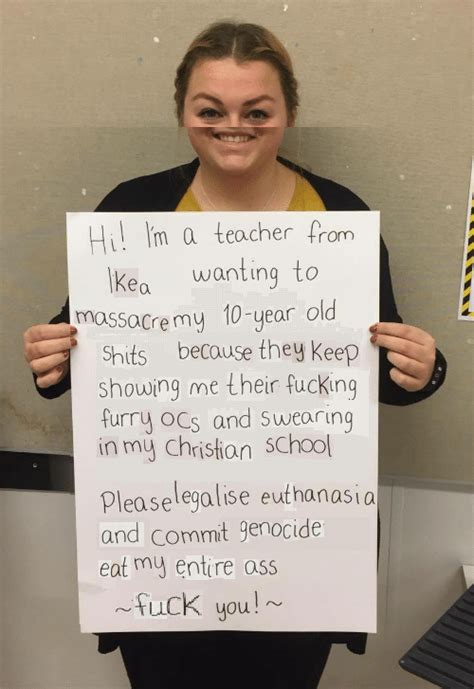 Hi! I'm a teacher from
Ikea wanting to
massacre my 10-year old
shits because they keep
showing me their fucking
furry OCs and swearing
in my Christian school
Please legalise euthanasia
and commit genocide
eat my entire ass
~fuck you!~